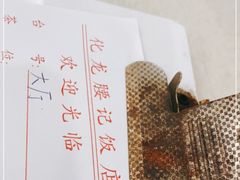 化龙腰记饭店
欢迎光临
台号：大厅
茶位